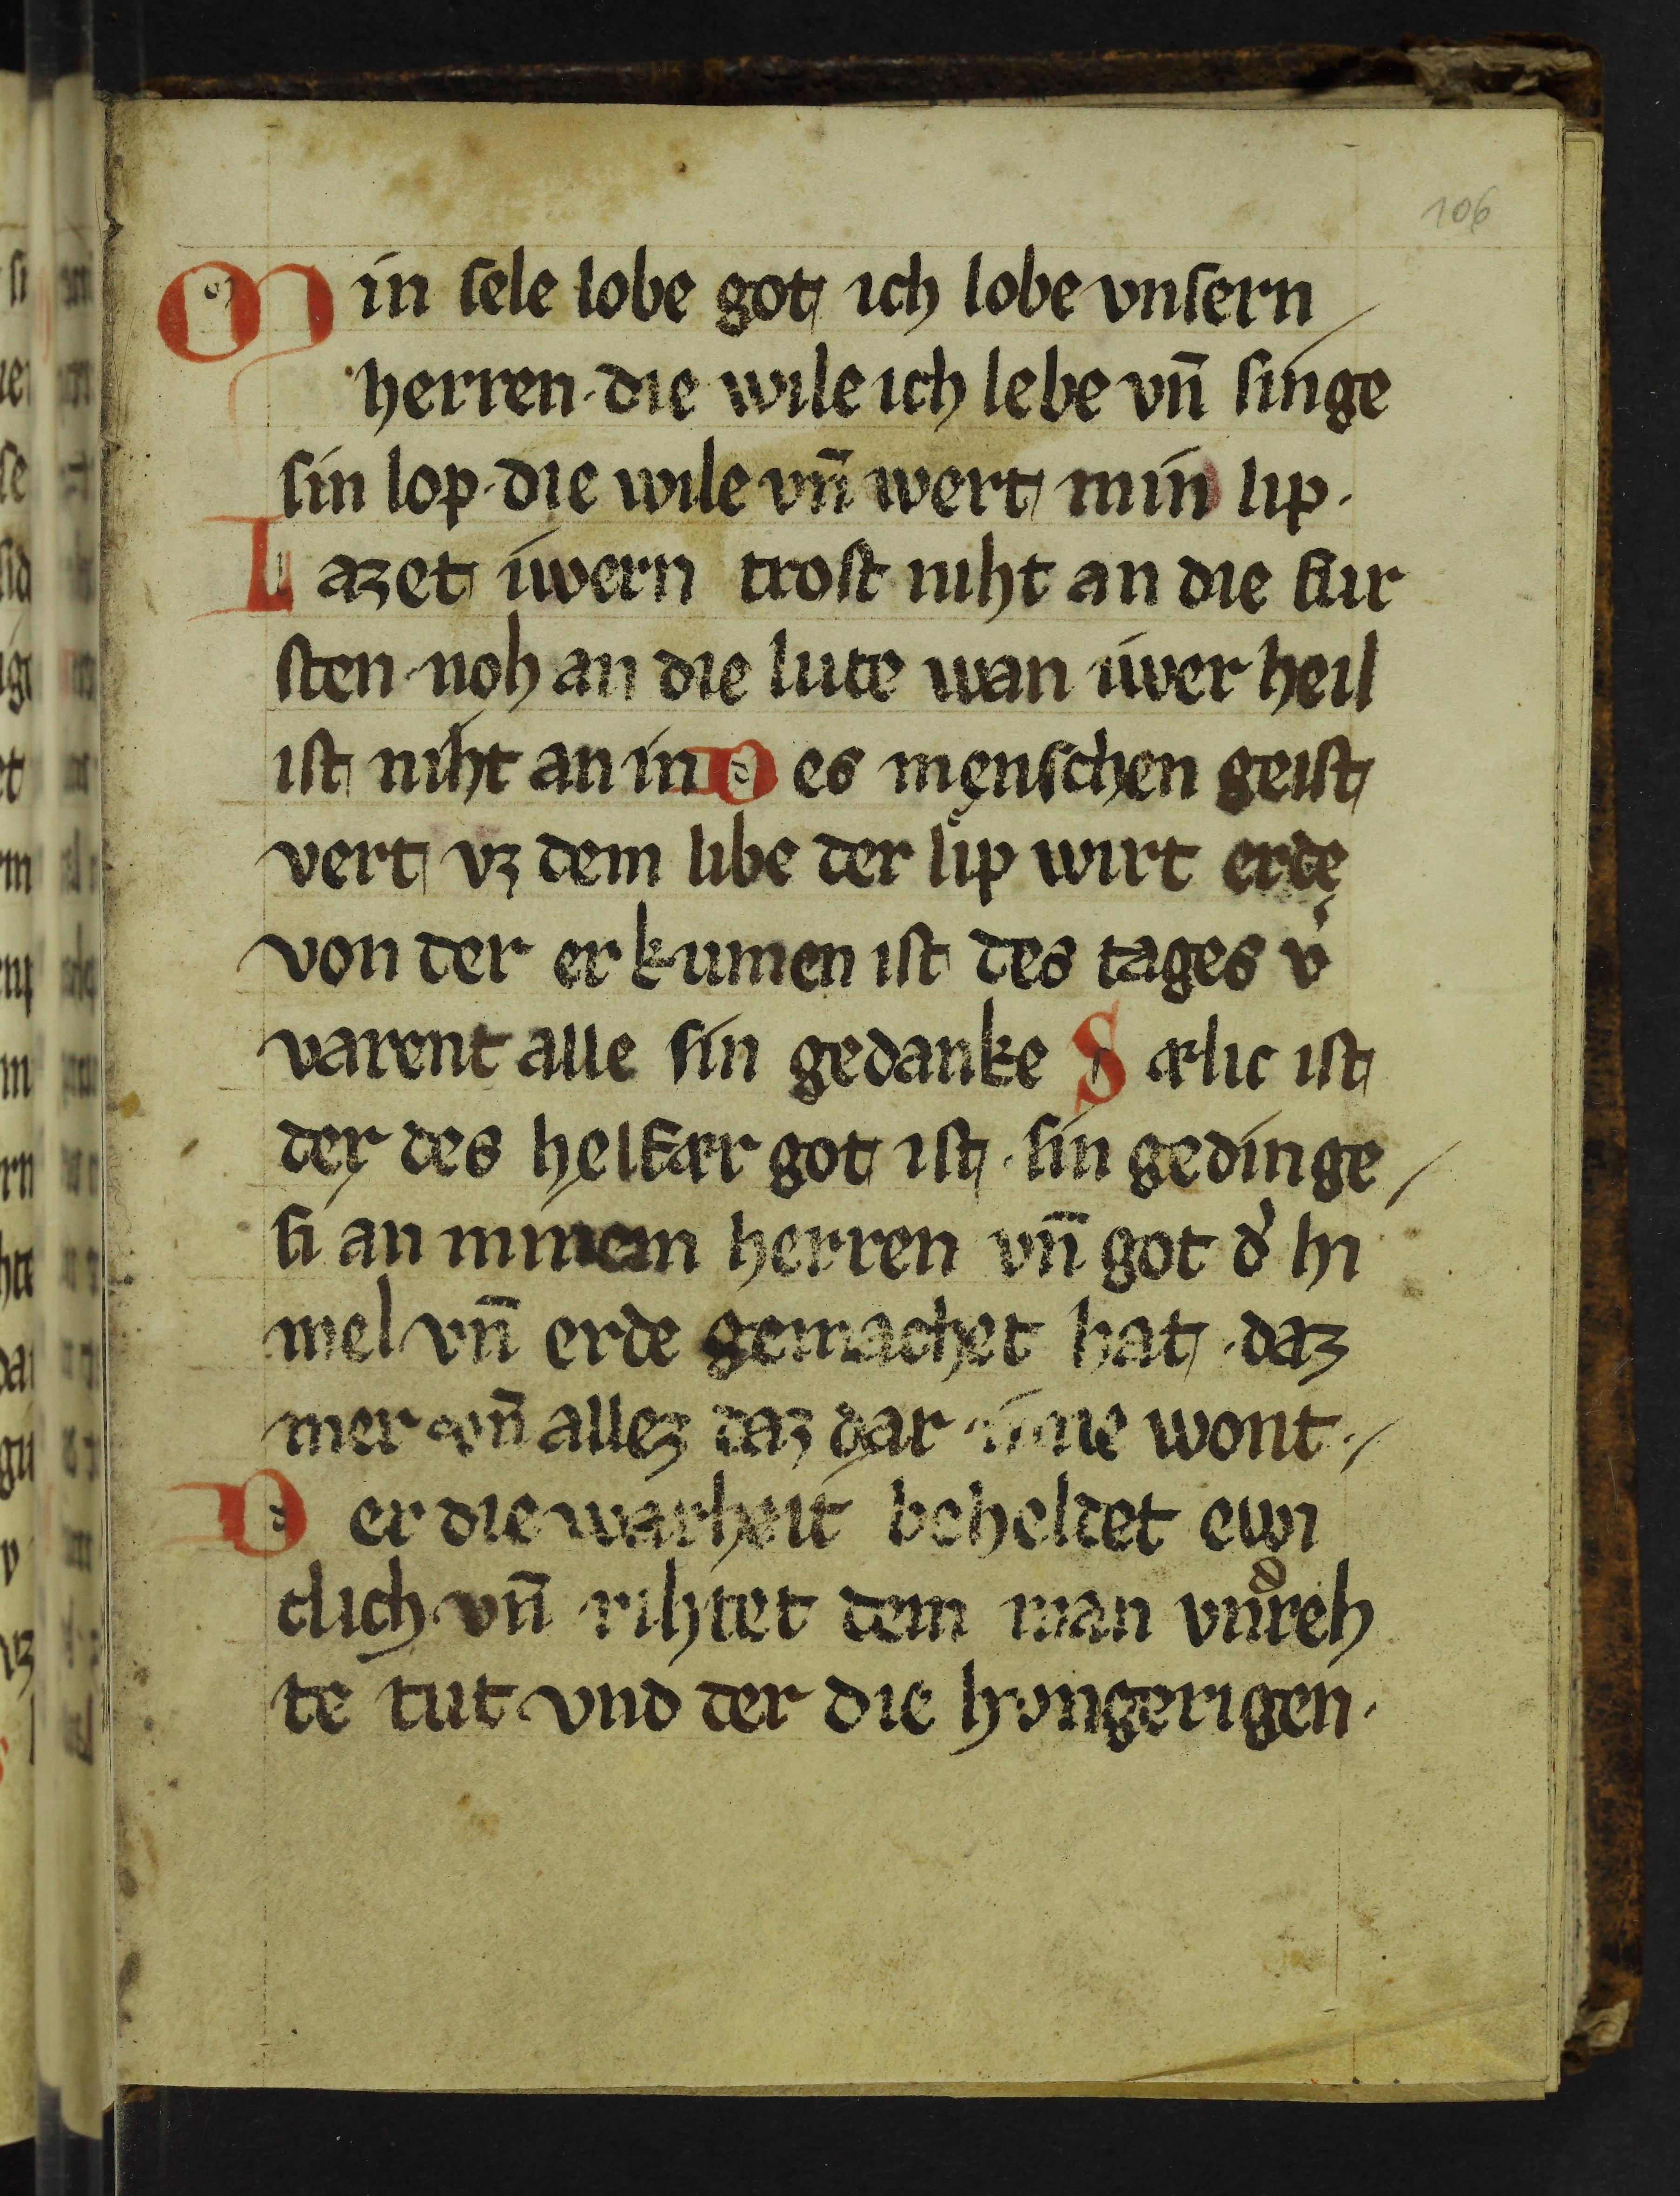 106
Min sele lobe got ich lobe vnsern
herren · die wile ich lebe vn̄ singe
sin lop · die wile vn̄ wert min lip ·
Lazet iwern trost niht an die fur
sten · noh an die lute wan iwer heil
ist niht an in Des menschen geist
vert vz dem libe der lip wirt erde
von der er kumen ist des tages v͛
varent alle sin gedanke Sælic ist
der des helfær got ist · sin gedinge
si an minem herren vn̄ got d͛ hi
mel vn̄ erde gemachet hat · daz
mer vn̄ allez daz dar inne wont ·
Der die warheit beheldet ewi
clich · vn̄ rihtet dem man vnreh
te tut vnd der die hungerigen ·